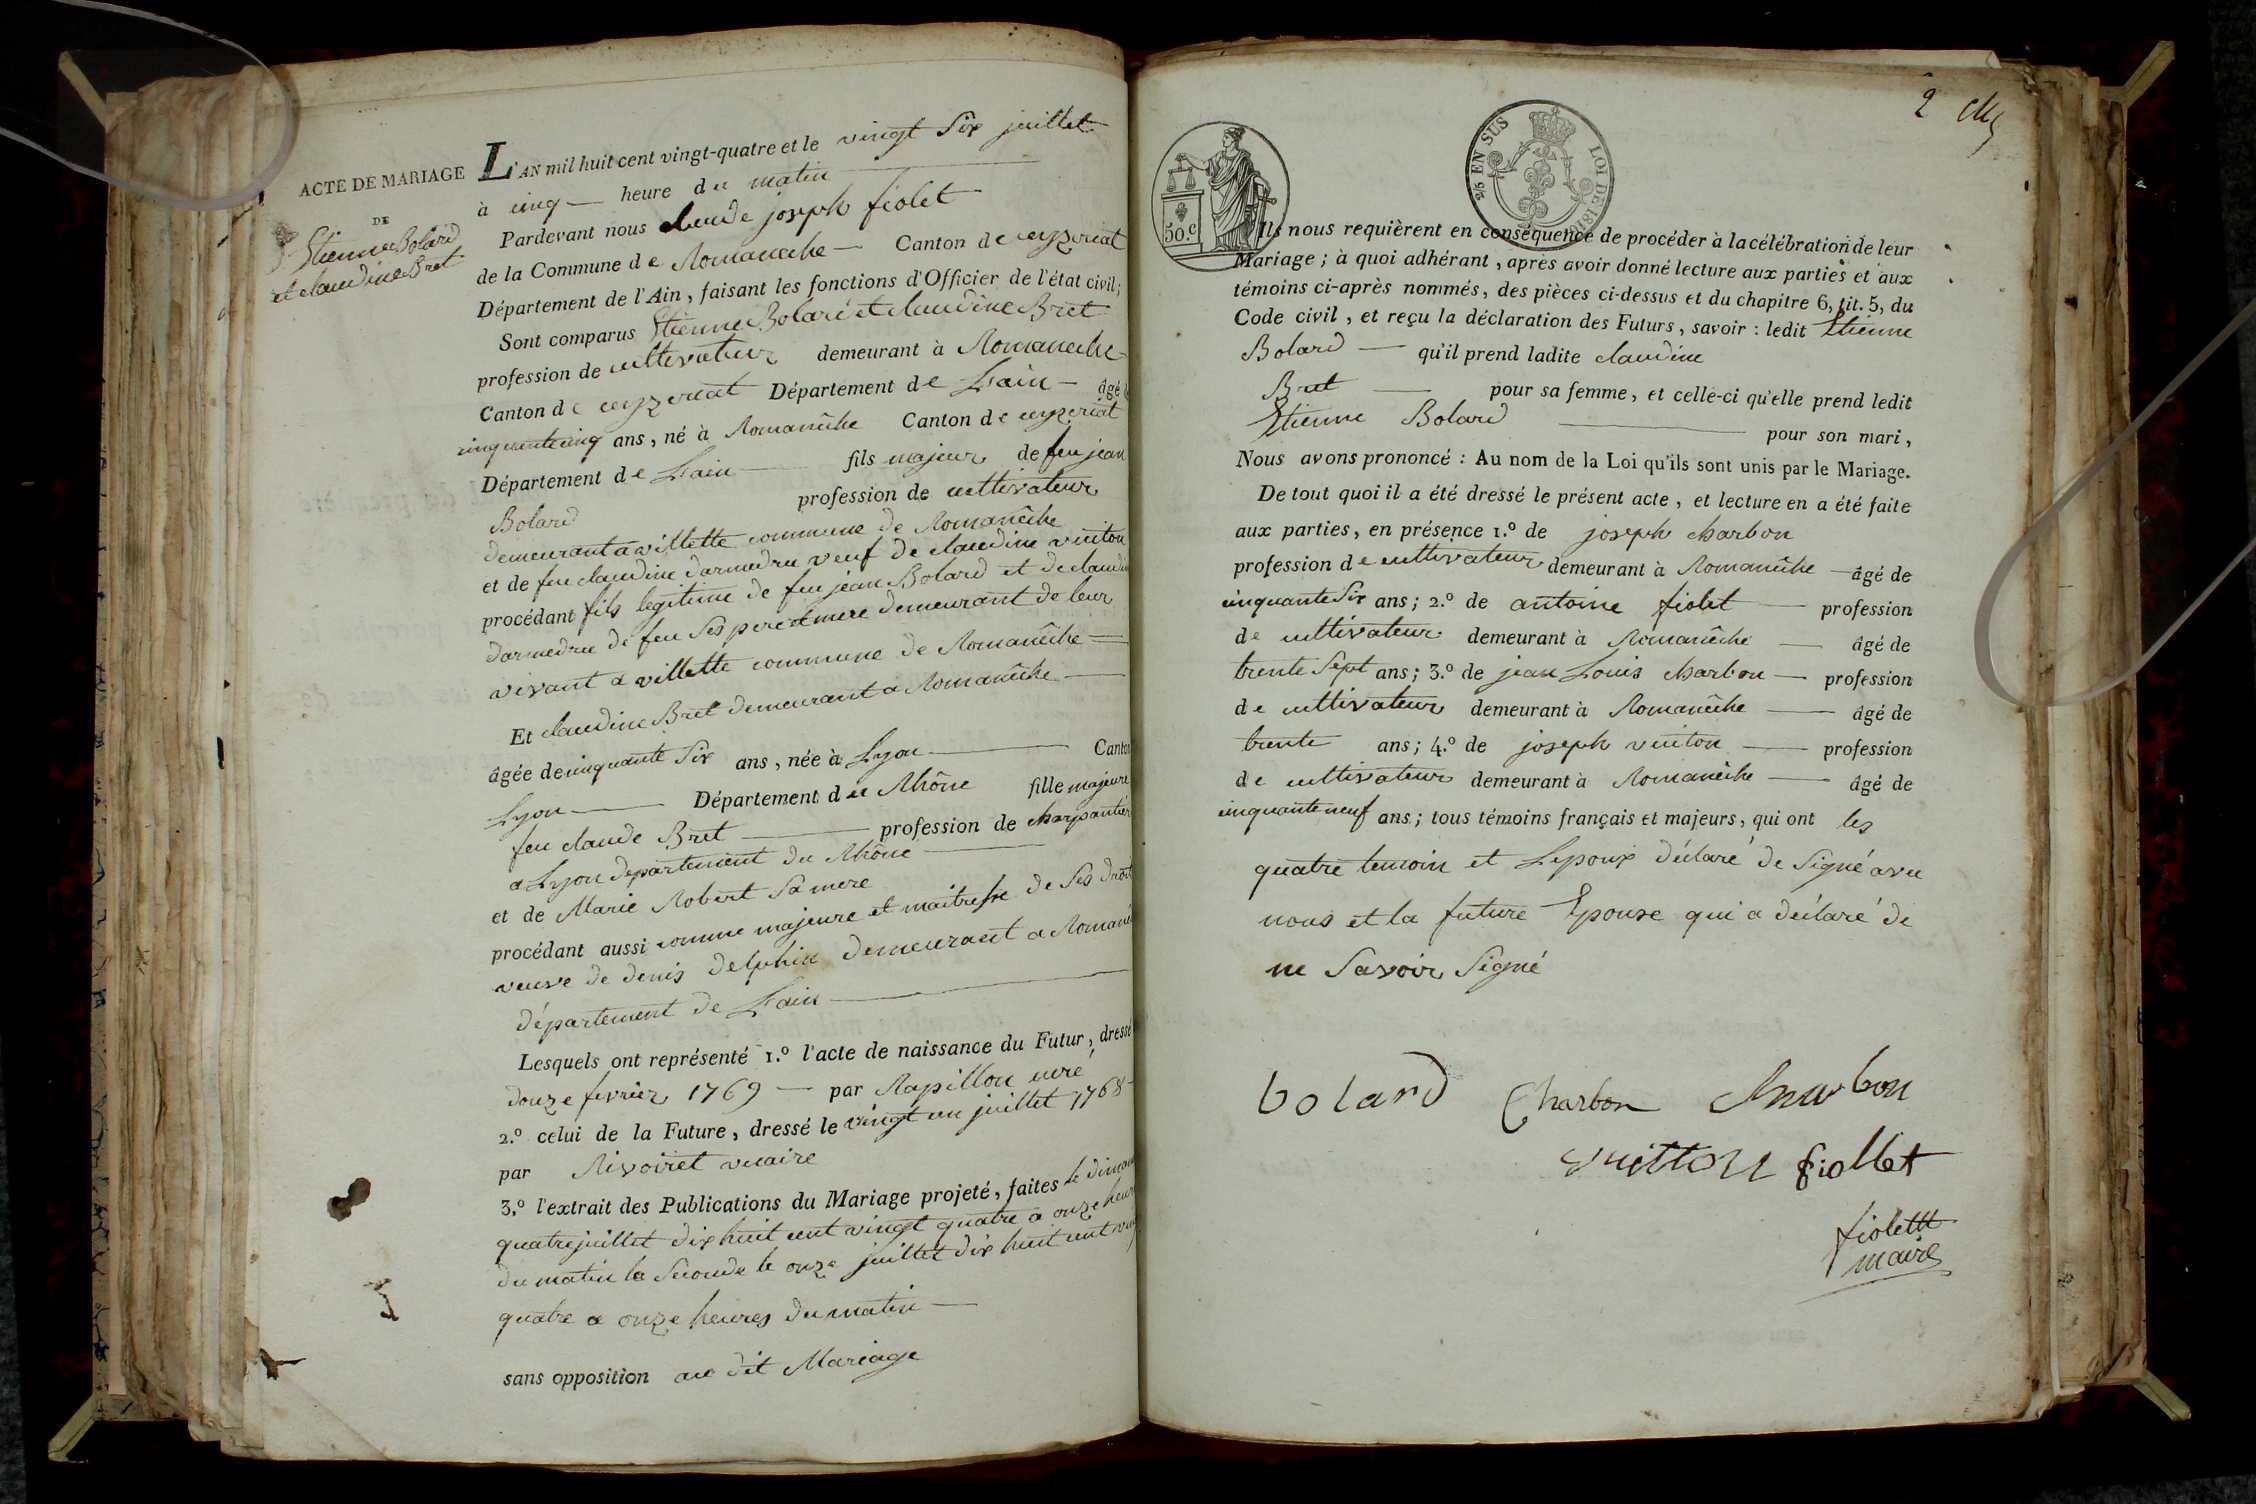 ACTE DE MARIAGE
DE
Etienne Bolard
et claudine Bret
L'AN mil huit cent vingt-quatre et le vingt Six juillet
à cinq — heure du matin
Pardevant nous claude joseph fiolet
de la Commune de Romaneche — Canton de ceyzeriat
Département de l'Ain, faisant les fonctions d'Officier de l'état civil;
Sont comparus Etienne Bolard et claudine Bret
profession de cultivateur demeurant à Romaneche
Canton de ceyzeriat Département de L'ain — âgé
cinquante cinq ans, né à Romanêche Canton de ceyzeriat
Département de L'ain — fils majeur de feu jean
Bolard profession de cultivateur
demeurant a villette commune de Romanêche
et de feu claudine darmedru veuf de claudine vuiton
procédant fils legitime de feu jean Bolard et de claudi
darmedru de feu Ses pere et mere demeurant de leur
vivant a villette commune de Romanêche —
Et claudine Bret demeurant a Romanêche —
âgée de cinquante Six ans, née à Lyon — Canton
Lyon — Département du Rhône fille majeure
feu claude Bret — profession de charpantier
a Lyon departement du Rhône —
et de Marie Robert Sa mere
procédant aussi comme majeure et maitresse de Ses droit
veuve de denis delphin demeurant a Romanê
département de L'ain —
Lesquels ont représenté 1.º l'acte de naissance du Futur, dressé
douze fevrier 1769 — par Rapillon curé
2.º celui de la Future, dressé le vingt un juillet 1768
par Rivoiret vicaire
3.º l'extrait des Publications du Mariage projeté, faites le diman
quatre juillet dix huit cent vingt quatre a onze heur
du matin la Seconde le onze juillet dix huit cent vin
quatre a onze heures du matin —
sans opposition au dit Mariage
2
50.C
25 EN SUS
LOI DE 1816
Ils nous requièrent en conséquence de procéder à la célébration de leur
Mariage; à quoi adhérant, après avoir donné lecture aux parties et aux
témoins ci-après nommés, des pièces ci-dessus et du chapitre 6, tit. 5, du
Code civil, et reçu la déclaration des Futurs, savoir: ledit Etienne
Bolard — qu'il prend ladite claudine
Bret — pour sa femme, et celle-ci qu'elle prend ledit
Etienne Bolard — pour son mari,
Nous avons prononcé: Au nom de la Loi qu'ils sont unis par le Mariage.
De tout quoi il a été dressé le présent acte, et lecture en a été faite
aux parties, en présence 1.º de joseph charbon
profession de cultivateur demeurant à Romanêche — âgé de
cinquante Six ans; 2.º de antoine fiolet — profession
de cultivateur demeurant à Romanêche — âgé de
trente Sept ans; 3.º de jean Louis charbon — profession
de cultivateur demeurant à Romanêche — âgé de
trente ans; 4.º de joseph vuiton — profession
de cultivateur demeurant à Romanêche — âgé de
cinquante neuf ans; tous témoins français et majeurs, qui ont les
quatre temoin et L'epoux déclaré de Signé avec
nous et la future Epouse qui a déclaré de
ne Savoir Signé
bolard Charbon Charbon
vuitton fiollet
fiolett
maire